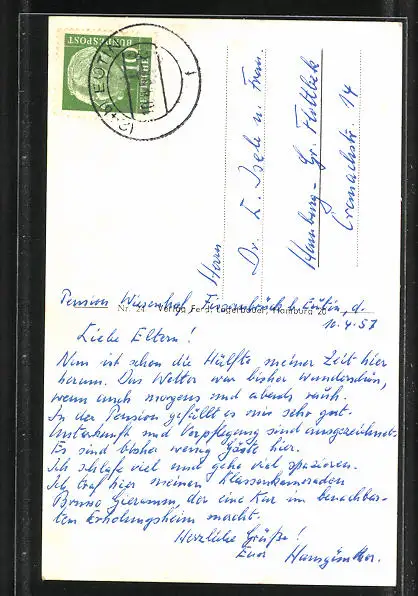 BUNDESPOST
10
DEUTSCHE
(24b) EUTIN
Herrn
Dr. E. Iseli u. Frau
Hamburg-Gr. Flottbek
Cranachstr. 14
Nr. 24 Verlag Ferd. Lagerbauer, Hamburg 20
Pension Wiesenhof, b. Eutin, d.
10.4.57
Liebe Eltern!
Nun ist schon die Hälfte meiner Zeit hier
herum. Das Wetter war bisher wunderschön,
wenn auch morgens und abends rauh.
In der Pension gefällt es mir sehr gut.
Unterkunft und Verpflegung sind ausgezeichnet.
Es sind bisher wenig Gäste hier.
Ich schlafe viel und gehe viel spazieren.
Ich traf hier meinen Klassenkameraden
Bruno, der eine Kur im benachbar-
ten Erholungsheim macht.
Herzliche Grüße!
Euer Hansgünther.